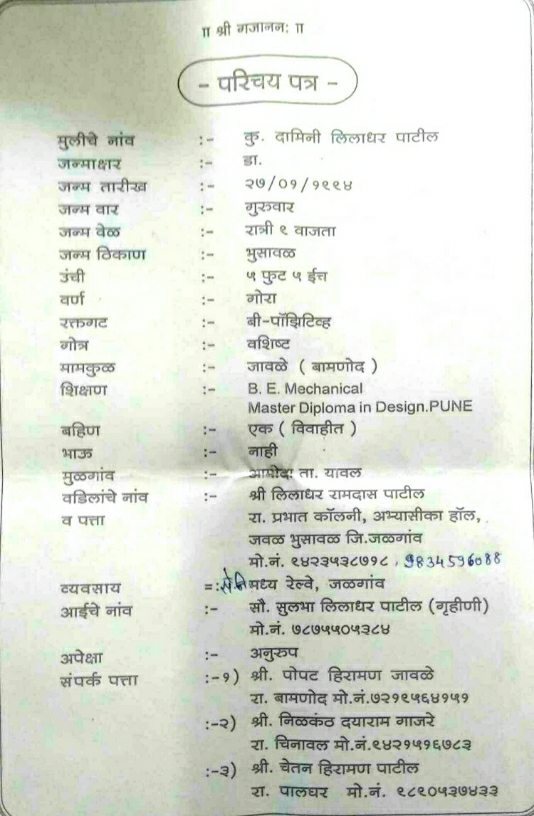 ॥ श्री गजानन: ॥
- परिचय पत्र -
मुलीचे नांव :- कु. दामिनी लिलाधर पाटील
जन्माक्षर :- डा.
जन्म तारीख :- २७/०१/१९९४
जन्म वार :- गुरुवार
जन्म वेळ :- रात्री ९ वाजता
जन्म ठिकाण :- भुसावळ
उंची :- ५ फुट ५ ईंच
वर्ण :- गोरा
रक्तगट :- बी-पॉझिटिव्ह
गोत्र :- वशिष्ट
मामकुळ :- जावळे ( बामणोद )
शिक्षण :- B. E. Mechanical
Master Diploma in Design.PUNE
बहिण :- एक ( विवाहीत )
भाऊ :- नाही
मुळगांव :- आमोदा ता. यावल
वडिलांचे नांव :- श्री लिलाधर रामदास पाटील
व पत्ता रा. प्रभात कॉलनी, अभ्यासीका हॉल,
जवळ भुसावळ जि.जळगांव
मो.नं. ९४२३५३८७१८, 9834596088
व्यवसाय =: मध्य रेल्वे, जळगांव
आईचे नांव :- सौ. सुलभा लिलाधर पाटील (गृहीणी)
मो.नं. ७८७५५०५३८४
अपेक्षा :- अनुरुप
संपर्क पत्ता :-१) श्री. पोपट हिरामण जावळे
रा. बामणोद मो.नं.७२१९५६४१५१
:-२) श्री. निळकंठ दयाराम गाजरे
रा. चिनावल मो.नं.९४२१५१६७८३
:-३) श्री. चेतन हिरामण पाटील
रा. पालघर मो.नं. ९८९०५३७४३३